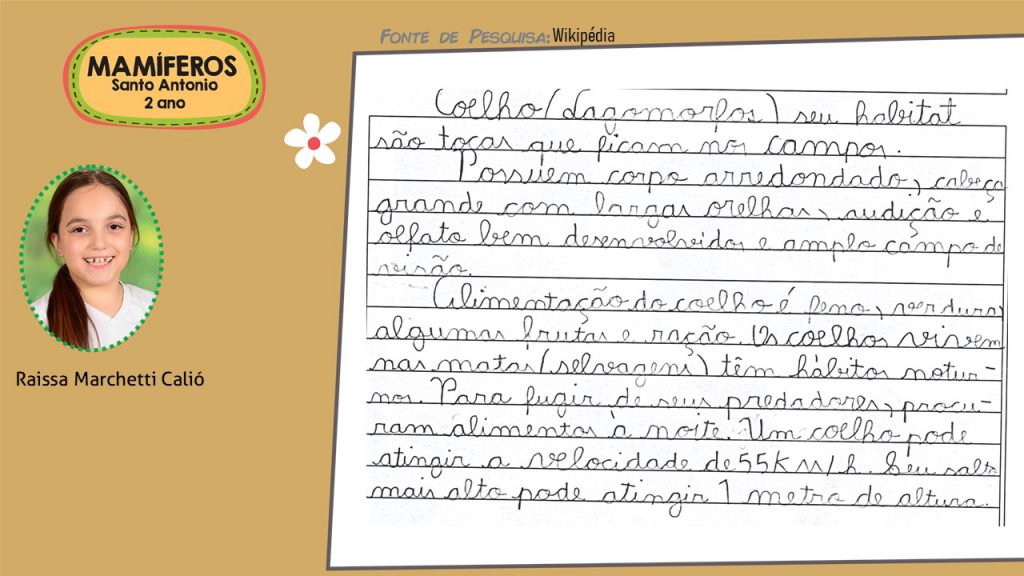 MAMÍFEROS
Santo Antonio
2 ano
Raissa Marchetti Calió
FONTE DE PESQUISA: Wikipédia
Coelho (Lagomorfos) seu habitat
são tocas que ficam nos campos.
Possuem corpo arredondado, cabeça
grande com largas orelhas, audição e
olfato bem desenvolvidos e amplo campo de
visão.
Alimentação do coelho é feno, verduras,
algumas frutas e ração. Os coelhos vivem
nas matas (selvagens) têm hábitos notur-
nos. Para fugir de seus predadores, procu-
ram alimentos à noite. Um coelho pode
atingir a velocidade de 55 Km/h. Seu salto
mais alto pode atingir 1 metro de altura.